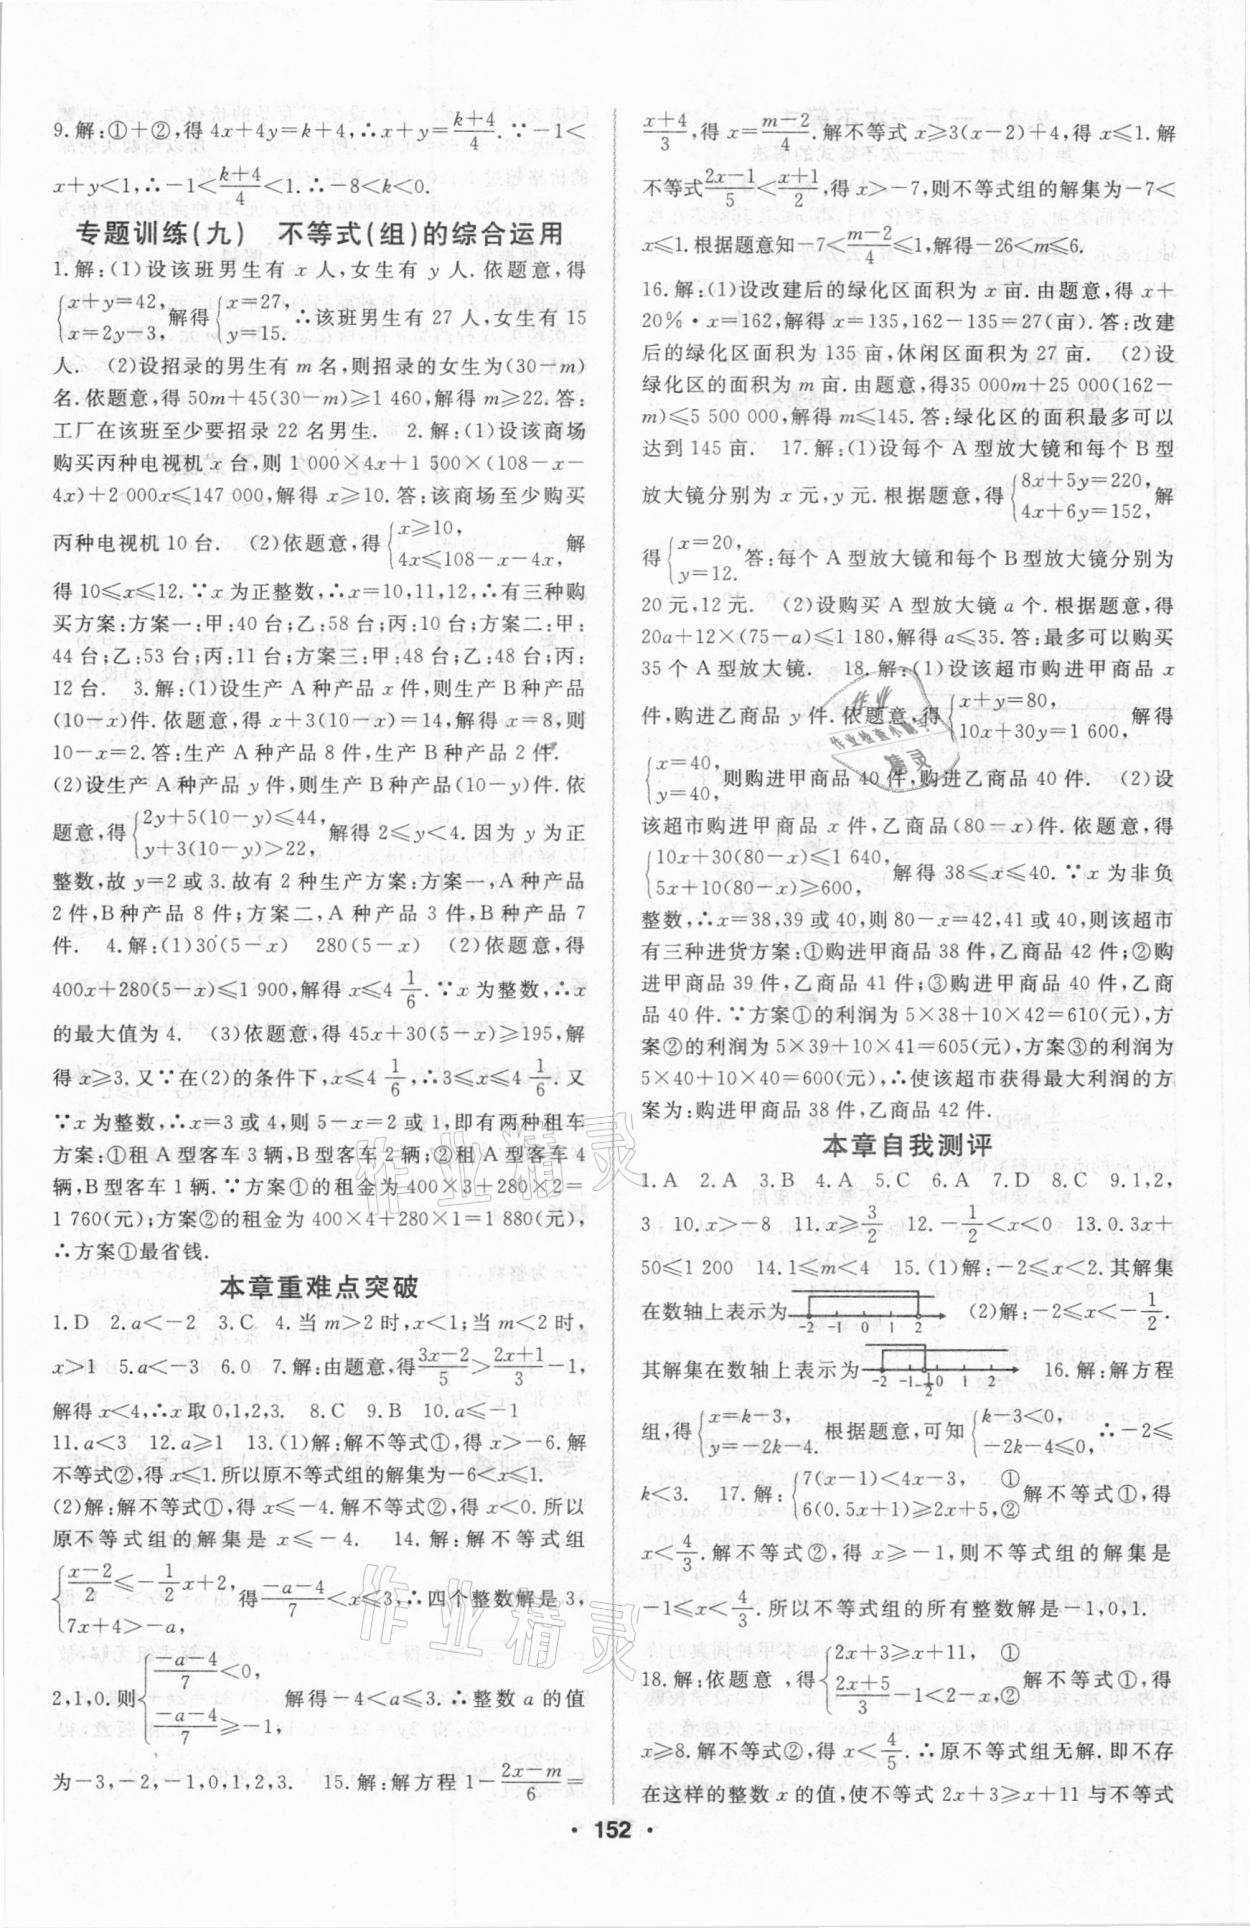 9.解:①+②,得4x+4y=k+4,∴x+y=\frac{k+4}{4}.∵-1<
x+y<1,∴-1<\frac{k+4}{4}<1.∴-8<k<0.
专题训练(九) 不等式(组)的综合运用
1.解:(1)设该班男生有 x 人,女生有 y 人.依题意,得
{x+y=42, x=2y-3, 解得{x=27, y=15. ∴该班男生有 27 人,女生有 15
人. (2)设招录的男生有 m 名,则招录的女生为(30-m)
名.依题意,得 50m+45(30-m)≥1 460,解得 m≥22.答:
工厂在该班至少要招录 22 名男生. 2.解:(1)设该商场
购买丙种电视机 x 台,则 1 000×4x+1 500×(108-x-
4x)+2 000x≤147 000,解得 x≥10.答:该商场至少购买
丙种电视机 10 台. (2)依题意,得{x≥10, 4x≤108-x-4x, 解
得 10≤x≤12.∵x 为正整数,∴x=10,11,12,∴有三种购
买方案:方案一:甲:40 台;乙:58 台;丙:10 台;方案二:甲:
44 台;乙:53 台;丙:11 台;方案三:甲:48 台;乙:48 台;丙:
12 台. 3.解:(1)设生产 A 种产品 x 件,则生产 B 种产品
(10-x)件.依题意,得 x+3(10-x)=14,解得 x=8,则
10-x=2.答:生产 A 种产品 8 件,生产 B 种产品 2 件.
(2)设生产 A 种产品 y 件,则生产 B 种产品(10-y)件.依
题意,得{2y+5(10-y)≤44, y+3(10-y)>22, 解得 2≤y<4.因为 y 为正
整数,故 y=2 或 3.故有 2 种生产方案:方案一,A 种产品
2 件,B 种产品 8 件;方案二,A 种产品 3 件,B 种产品 7
件. 4.解:(1)30(5-x) 280(5-x) (2)依题意,得
400x+280(5-x)≤1 900,解得 x≤4\frac{1}{6}.∵x 为整数,∴x
的最大值为 4. (3)依题意,得 45x+30(5-x)≥195,解
得 x≥3.又∵在(2)的条件下,x≤4\frac{1}{6},∴3≤x≤4\frac{1}{6}.又
∵x 为整数,∴x=3 或 4,则 5-x=2 或 1,即有两种租车
方案:①租 A 型客车 3 辆,B 型客车 2 辆;②租 A 型客车 4
辆,B 型客车 1 辆.∵方案①的租金为 400×3+280×2=
1 760(元);方案②的租金为 400×4+280×1=1 880(元),
∴方案①最省钱.
本章重难点突破
1.D 2.a<-2 3.C 4.当 m>2 时,x<1;当 m<2 时,
x>1 5.a<-3 6.0 7.解:由题意,得\frac{3x-2}{5}>\frac{2x+1}{3}-1,
解得 x<4,∴x 取 0,1,2,3. 8.C 9.B 10.a≤-1
11.a<3 12.a≥1 13.(1)解:解不等式①,得 x>-6.解
不等式②,得 x≤1.所以原不等式组的解集为-6<x≤1.
(2)解:解不等式①,得 x≤-4.解不等式②,得 x<0.所以
原不等式组的解集是 x≤-4. 14.解:解不等式组
{\frac{x-2}{2}≤-\frac{1}{2}x+2, 7x+4>-a, 得\frac{-a-4}{7}<x≤3,∴四个整数解是 3,
2,1,0.则{\frac{-a-4}{7}<0, \frac{-a-4}{7}≥-1, 解得-4<a≤3.∴整数 a 的值
为-3,-2,-1,0,1,2,3. 15.解:解方程 1-\frac{2x-m}{6}=
\frac{x+4}{3},得 x=\frac{m-2}{4}.解不等式 x≥3(x-2)+4,得 x≤1.解
不等式\frac{2x-1}{5}<\frac{x+1}{2},得 x>-7,则不等式组的解集为-7<
x≤1.根据题意知-7<\frac{m-2}{4}≤1,解得-26<m≤6.
16.解:(1)设改建后的绿化区面积为 x 亩.由题意,得 x+
20%·x=162,解得 x=135,162-135=27(亩).答:改建
后的绿化区面积为 135 亩,休闲区面积为 27 亩. (2)设
绿化区的面积为 m 亩.由题意,得35 000m+25 000(162-
m)≤5 500 000,解得 m≤145.答:绿化区的面积最多可以
达到 145 亩. 17.解:(1)设每个 A 型放大镜和每个 B 型
放大镜分别为 x 元,y 元.根据题意,得{8x+5y=220, 4x+6y=152, 解
得{x=20, y=12. 答:每个 A 型放大镜和每个 B 型放大镜分别为
20 元,12 元. (2)设购买 A 型放大镜 a 个.根据题意,得
20a+12×(75-a)≤1 180,解得 a≤35.答:最多可以购买
35 个 A 型放大镜. 18.解:(1)设该超市购进甲商品 x
件,购进乙商品 y 件.依题意,得{x+y=80, 10x+30y=1 600, 解得
{x=40, y=40, 则购进甲商品 40 件,购进乙商品 40 件. (2)设
该超市购进甲商品 x 件,乙商品(80-x)件.依题意,得
{10x+30(80-x)≤1 640, 5x+10(80-x)≥600, 解得 38≤x≤40.∵x 为非负
整数,∴x=38,39 或 40,则 80-x=42,41 或 40,则该超市
有三种进货方案:①购进甲商品 38 件,乙商品 42 件;②购
进甲商品 39 件,乙商品 41 件;③购进甲商品 40 件,乙商
品 40 件.∵方案①的利润为 5×38+10×42=610(元),方
案②的利润为 5×39+10×41=605(元),方案③的利润为
5×40+10×40=600(元),∴使该超市获得最大利润的方
案为:购进甲商品 38 件,乙商品 42 件.
本章自我测评
1.A 2.A 3.B 4.A 5.C 6.A 7.D 8.C 9.1,2,
3 10.x>-8 11.x≥\frac{3}{2} 12.-\frac{1}{2}<x<0 13.0.3x+
50≤1 200 14.1≤m<4 15.(1)解:-2≤x<2.其解集
在数轴上表示为 -2 -1 0 1 2 (2)解:-2≤x<-\frac{1}{2}.
其解集在数轴上表示为 -2 -1 -\frac{1}{2} 0 1 2 16.解:解方程
组,得{x=k-3, y=-2k-4. 根据题意,可知{k-3<0, -2k-4≤0, ∴-2≤
k<3. 17.解:{7(x-1)<4x-3, ① 6(0.5x+1)≥2x+5,② 解不等式①,得
x<\frac{4}{3}.解不等式②,得 x≥-1,则不等式组的解集是
-1≤x<\frac{4}{3}.所以不等式组的所有整数解是-1,0,1.
18.解:依题意,得{2x+3≥x+11, ① \frac{2x+5}{3}-1<2-x,② 解不等式①,得
x≥8.解不等式②,得 x<\frac{4}{5}.∴原不等式组无解.即不存
在这样的整数 x 的值,使不等式 2x+3≥x+11 与不等式
· 152 ·
作业
作业检查小帮手
精灵
作业精灵
作业精灵